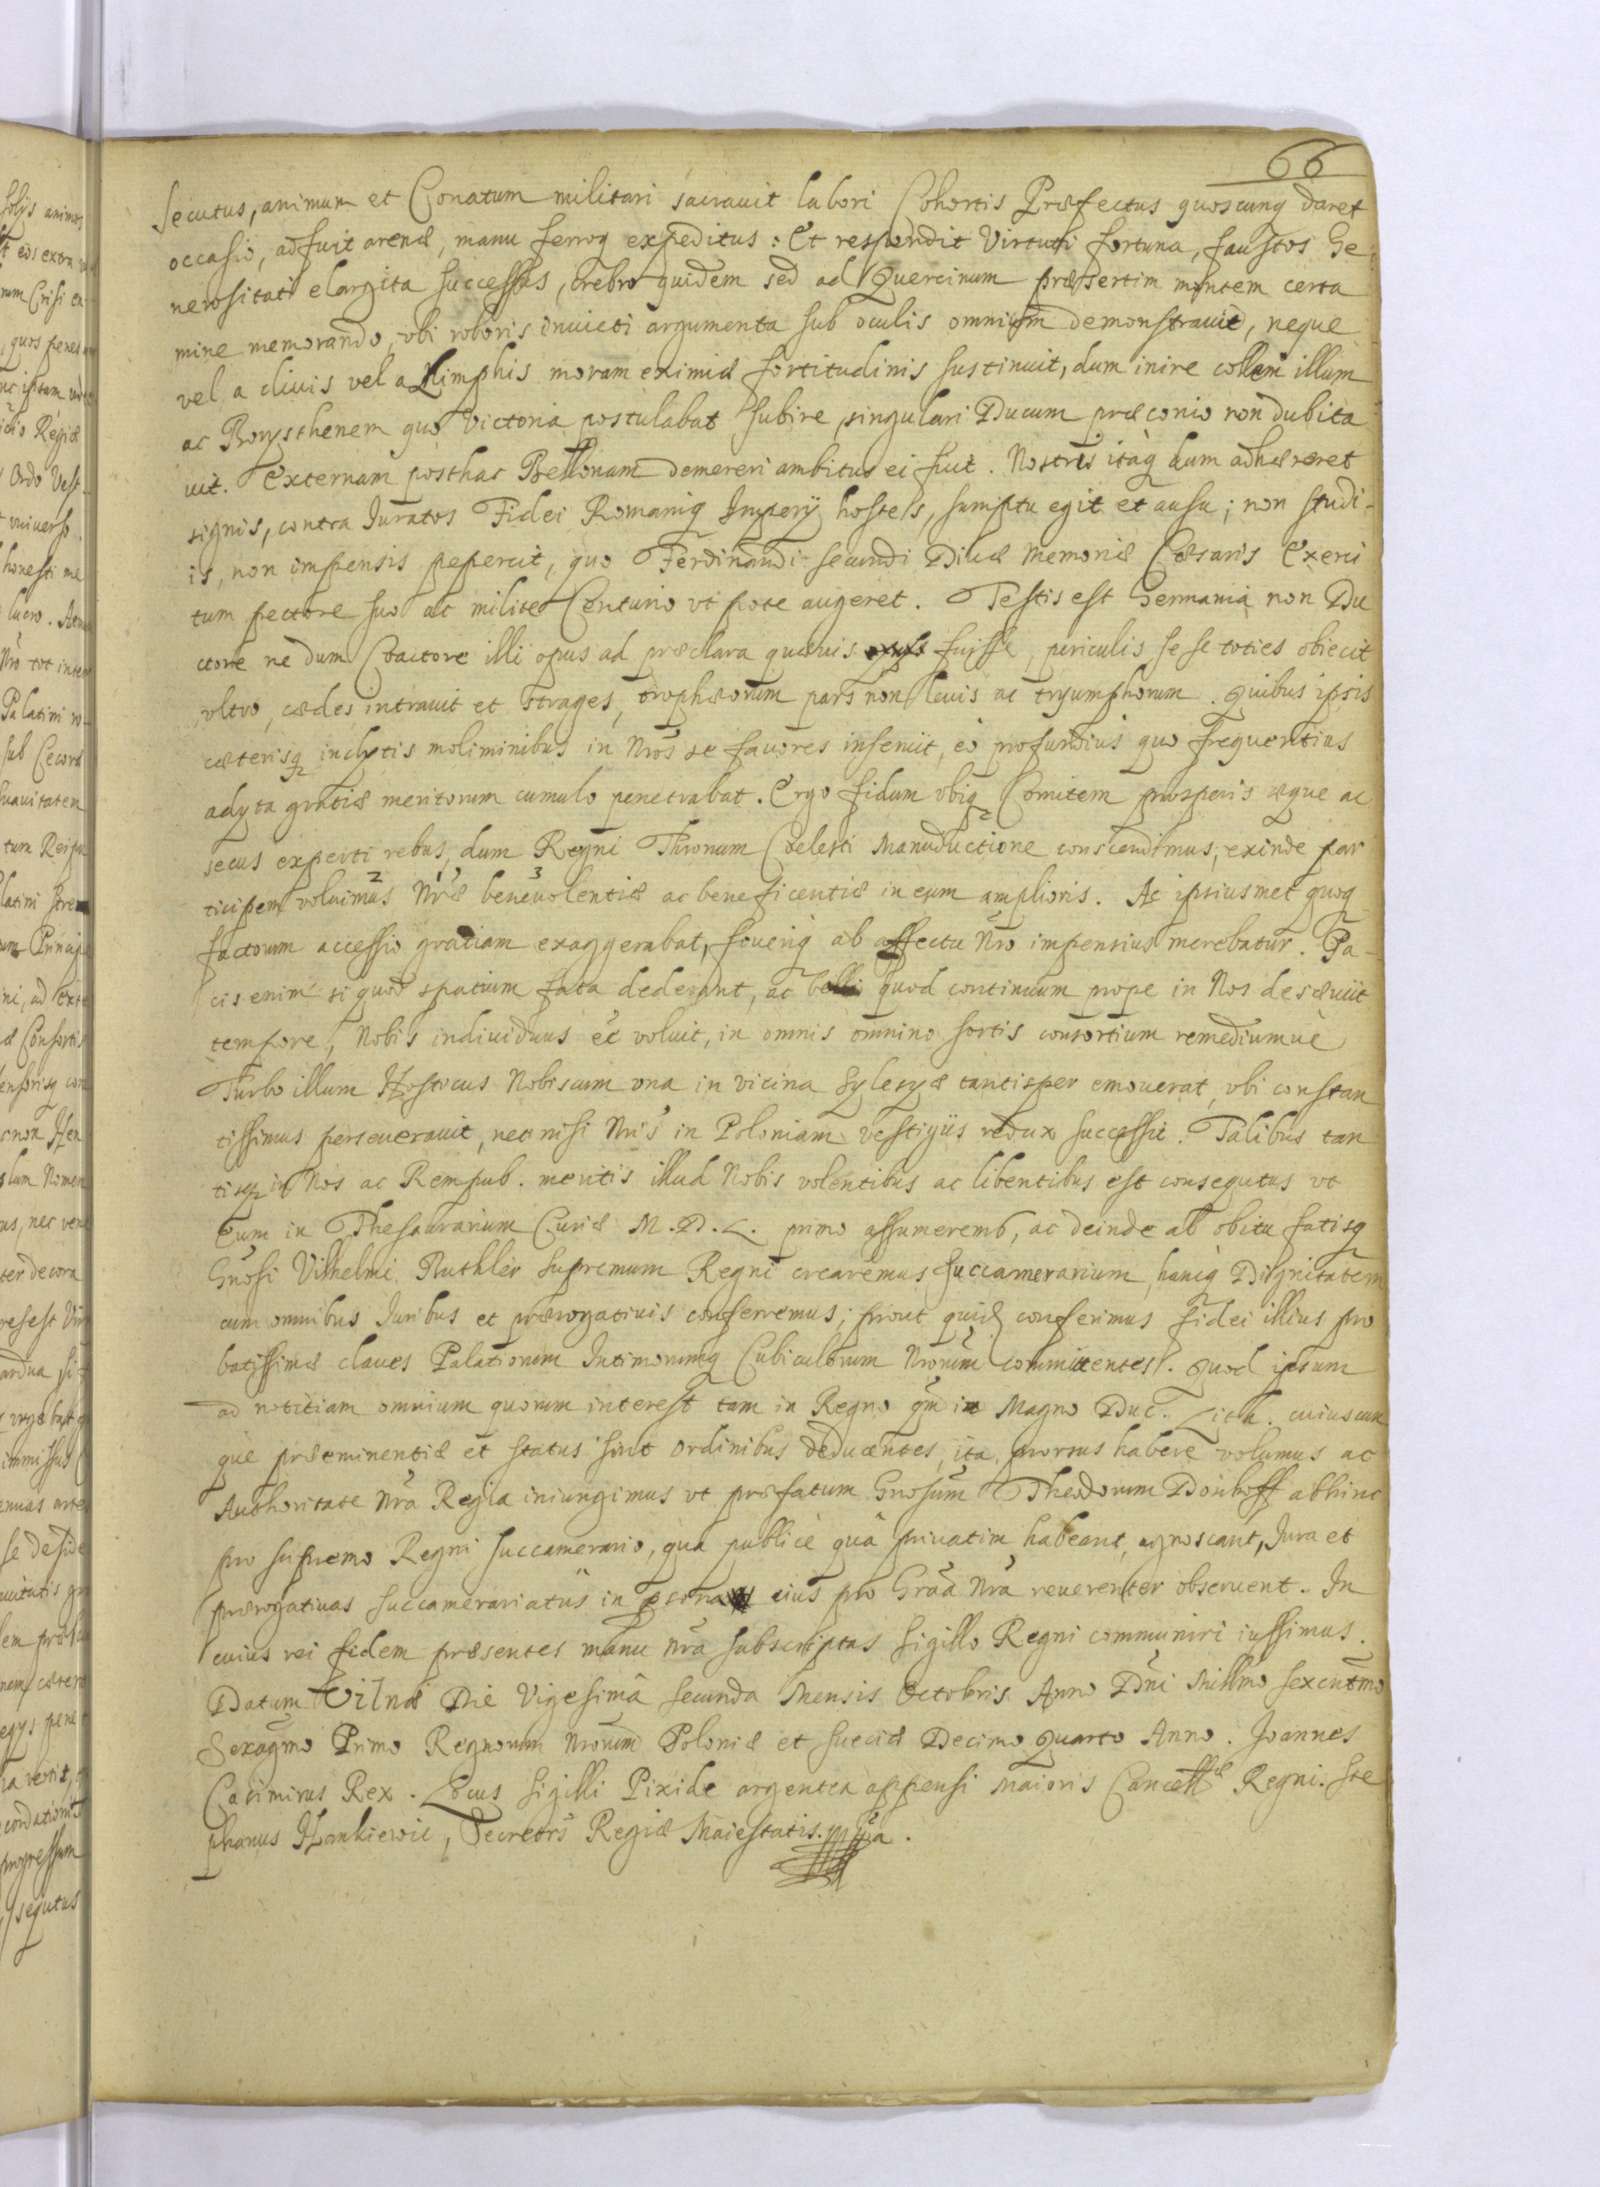 66
secutus, animum et Conatum militari sacrauit labori Cohortis Præfectus quoscunq daret
occasio, adfuit arenæ, manu ferroq expeditus: Et respondit Virtuti fortuna, faustos Ge
nerositati elargita successus, crebro quidem sed ad Quercinum præsertim montem certa
mine memorando, vbi roboris inuicti argumenta sub oculis omnium demonstrauit, neque
vel a cliuis vel a Limphis moram eximiæ fortitudinis sustinuit, dum inire collem illum
ac Borysthenem quo Victoria postulabat subire, singulari Ducum præconio non dubita
uit. Externam posthac Bellonam demereri ambitus ei fuit. Nostris itaq dum adhæreret
signis, contra Iuratos Fidei Romaniq Imperij hostes, sumptu egit et ausu; non studi-
is, non impensis pepercit, quo Ferdinandi secundi Diuæ Memoriæ Cæsaris Exerci
tum pectore suo ac milite Centurio vt pote augeret. Testis est Germania non Du
ctore nedum Coactore illi opus ad præclara quævis fuisse, periculis sese toties obiecit
vltro, cædes intrauit et strages, trophæorum pars non leuis ac tryumphorum. Quibus ipsis
cæterisq inclytis moliminibus in Nros se fauores inseruit, eò profundius quo frequentius
adyta gratiæ meritorum cumulo penetrabat. Ergo fidum vbiq Comitem prosperis æque ac
secus experti rebus, dum Regni Thronum Coelesti Manuductione conscendimus, exinde par
ticipem voluimus Nræ beneuolentiæ ac beneficentiæ in eum amplioris. Ac ipsiusmet quoq
factorum accessio gratiam exaggerabat, foueriq ab affectu Nro impensius merebatur. Pa-
cis enim si quod spatium fata dederunt, ac belli quod continuum prope in Nos desæuiit
tempore, Nobis indiuiduus et voluit, in omnis omnino sortis consortium remediumuè
Turbo illum Hosticus Nobiscum vna in vicina Sylesyæ tantisper emouerat, vbi constan
tissimus perseuerauit, nec nisi Nris in Poloniam vestigijs redux successit. Talibus tan
tisq in Nos ac Rempub. meritis illud Nobis volentibus ac libentibus est consequtus vt
Eum in Thesaurarium Curiæ M. D. L. primo assumeremb, ac deinde ab obitu fatisq
Gnosi Vilhelmi Buthler Supremum Regni crearemus Succamerarium, hancq Dignitatem
cum omnibus Iuribus et prærogatiuis conferremus; prout quid conferimus fidei illius pro
batissimæ claues Palatiorum Intimorumq Cubiculorum Nrorum committentes. Quod ipsum
ad notitiam omnium quorum interest tam in Regno qm in Magno Duc. Lith. cuiuscun
que præeminentiæ et status sint Ordinibus deducentes, ita prorsus habere volumus ac
Authoritate Nra Regia iniungimus vt præfatum Gnosum Theodorum Dönhoff abhinc
pro supremo Regni succamerario, quà publicè quà priuatim habeant, agnoscant, Iura et
prærogatiuas succamerariatus in psona eius pro Gra Nra reuerenter obseruent. In
cuius rei fidem præsentes manu Nra subscriptas Sigillo Regni communiri iussimus.
Datum Vilnæ Die Vigesima secunda Mensis Octobris Anno Dni Millmo sexcntmo
Sexagmo Primo Regnorum Nrorum Poloniæ et Sueciæ Decimo Quarto Anno. Joannes
Casimirus Rex. Locus Sigilli Pixide argentea appensi Maioris Cancellæ Regni. Ste
phanus Hankiewic, Secretrs Regiæ Maiestatis. mppa.